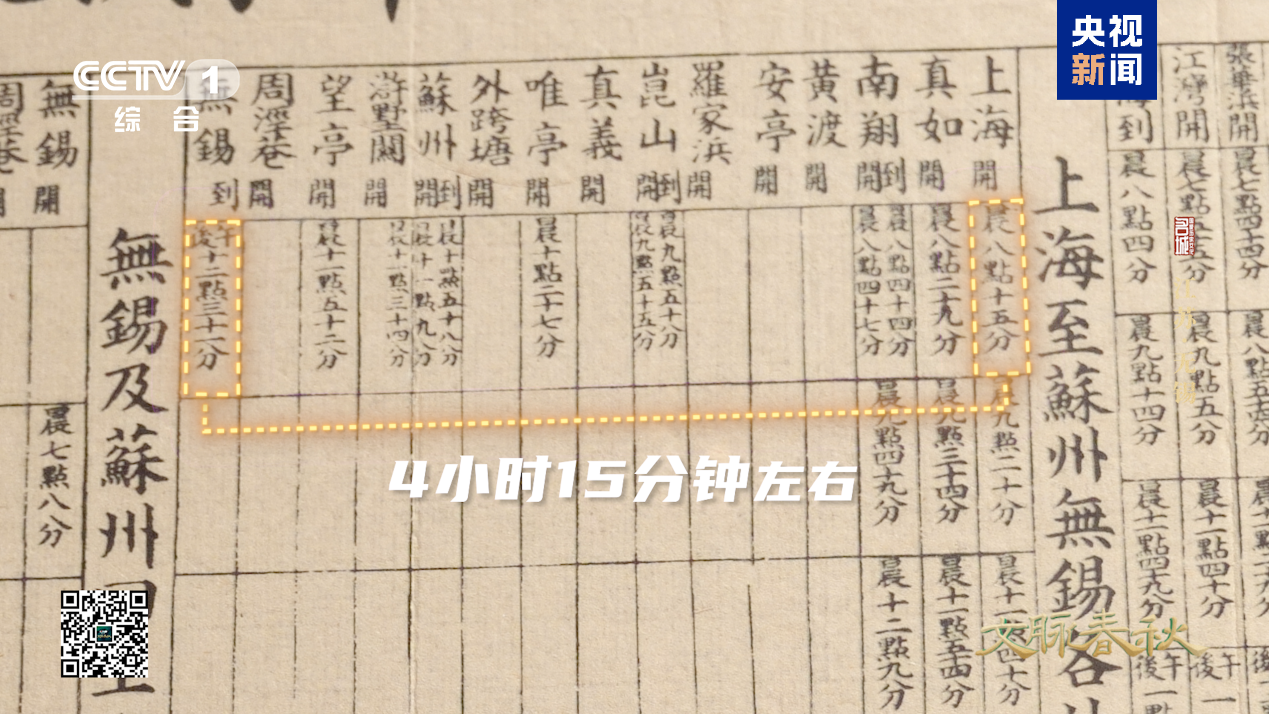 CCTV 1
综合
央视
新闻
張華浜開
晨七點四十四分
江灣開
晨九點五分
晨十一點四十分
上海到
晨八點四分
晨九點十四分
晨十一點四十九分
上海至蘇州無錫各
上海
開
晨八點十五分
晨九點二十分
真如
開
晨八點二十九分
晨九點三十四分
晨十一點五十四分
南翔
到
開
晨八點四十四分
晨八點四十七分
晨九點四十九分
晨十二點九分
黃渡
開
安亭
開
羅家浜
開
崑山
到
開
晨九點五十八分
晨九點五十五分
真義
開
唯亭
開
晨十點二十七分
外跨塘
開
蘇州
到
開
晨十點五十八分
晨十一點九分
滸墅關
開
晨十一點三十四分
望亭
開
晨十一點五十二分
周涇巷
開
無錫
到
午後十二點三十一分
無錫及蘇州
無錫
開
晨七點八分
周涇巷
開
4小时15分钟左右
名城
文脉春秋